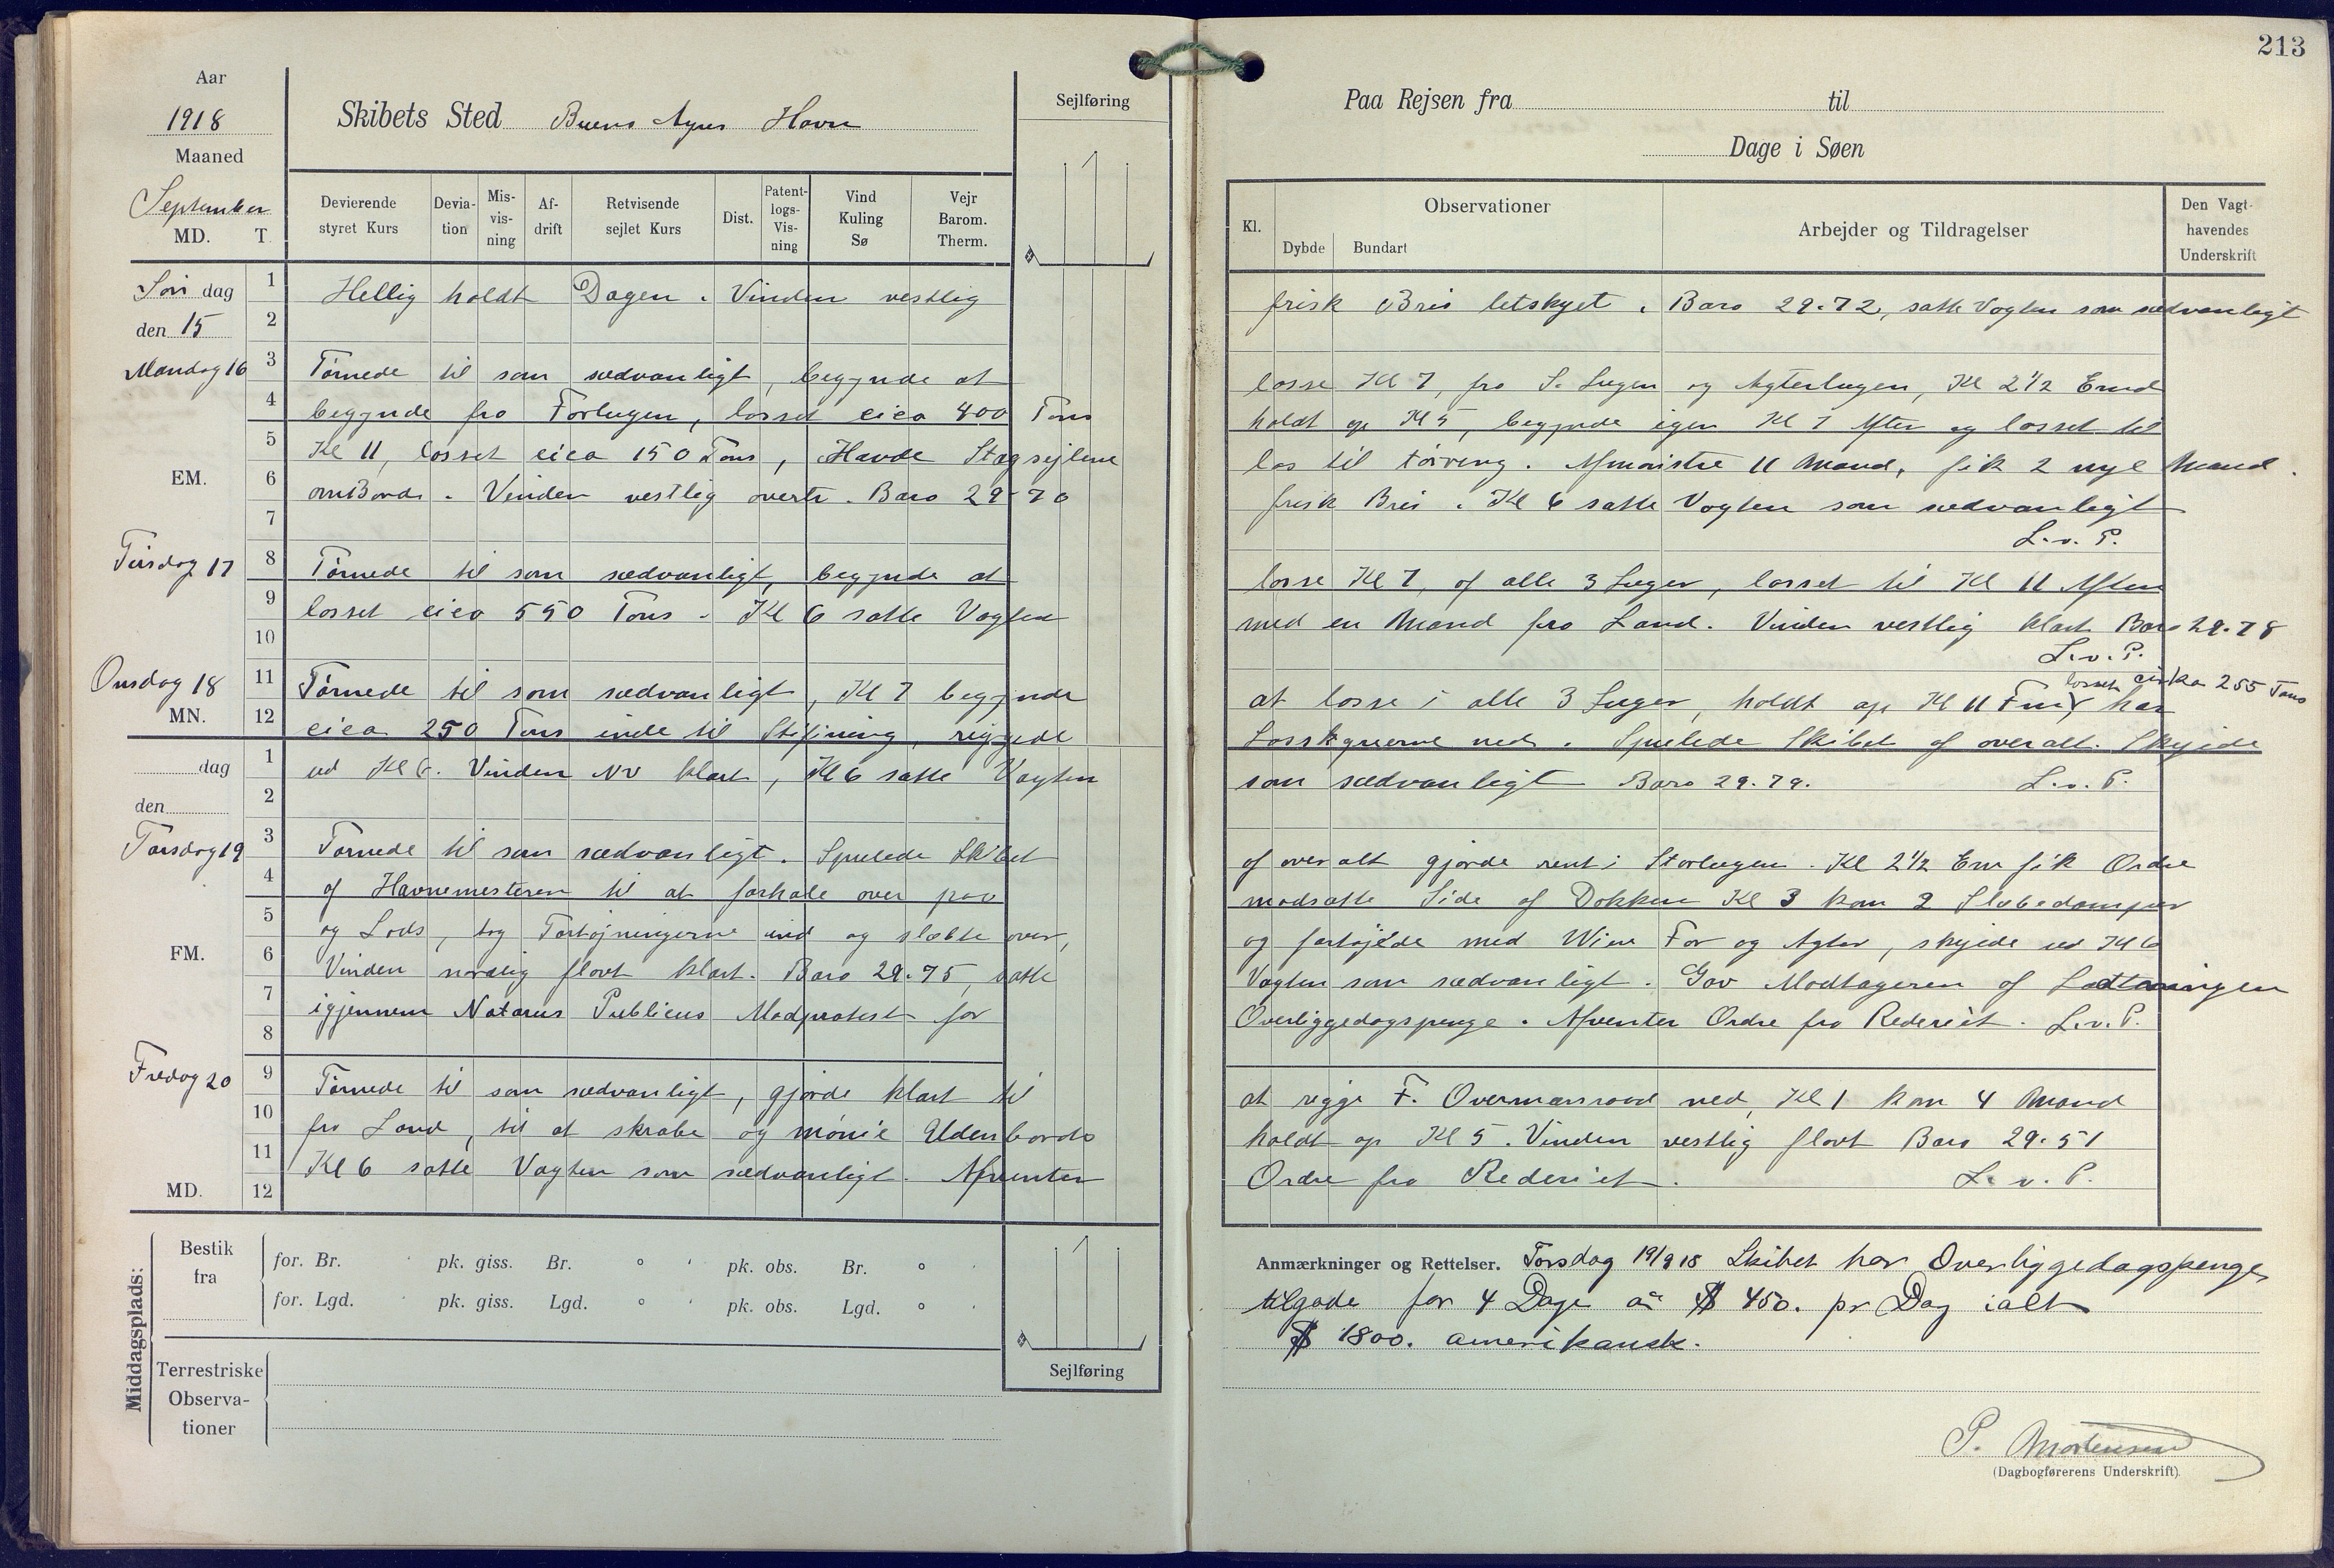 213
Aar
1918
Maaned
September
MD. T.
Skibets Sted Buens Ayres Havn
Sejlføring
Devierende styret Kurs
Devia-tion
Mis-vis-ning
Af-drift
Retvisende sejlet Kurs
Dist.
Patent-logs-Vis-ning
Vind Kuling Sø
Vejr Barom. Therm.
Søn dag den 15
1 2 3 4 5 6 7 8 9 10 11 12
Hellig holdt Dagen. Vinden vestlig
Mandag 16
Tørnede til som sædvanligt, begynde at
begynde fra Forlugen, losset cica 400 Tons
Kl 11, losset cica 150 Tons, Havde Stagsejlene
EM.
omBord. Vinden vestlig overtr. Baro 29-70
Tirsdag 17
Tørnede til som sædvanligt, begynde at
losset cica 550 Tons. Kl 6 satte Vagten
Onsdag 18
Tørnede til som sædvanligt, Kl 7 begynde
MN.
cica 250 Tons inde til Stifining, riggede
dag
den
1 2 3 4 5 6 7 8 9 10 11 12
ud Kl 6. Vinden NV klart, Kl 6 satte Vagten
Torsdag 19
Tørnede til som sædvanligt. Spulede Skibet
af Havnemesteren til at forhale over paa
og Lods, tog Fortøjningerne ind og slæbte over,
FM.
Vinden nordlig flovt klart. Baro 29.75, satte
igjennem Notarus Publicus Modprotest for
Fredag 20
Tørnede til som sædvanligt, gjorde klart til
fra Land, til at skrabe og mønie Udenbords
Kl 6 satte Vagten som sædvanligt. Afventer
MD.
Middagsplads:
Bestik fra
for. Br. pk. giss. Br. ° ' pk. obs. Br. ° '
for. Lgd. pk. giss. Lgd. ° ' pk. obs. Lgd. ° '
Terrestriske Observa-tioner
Sejlføring
Paa Rejsen fra til
Dage i Søen
Kl.
Observationer
Dybde Bundart
Arbejder og Tildragelser
Den Vagt-havendes Underskrift
frisk Bris letskyet. Baro 29.72, satte Vagten som sædvanligt
losse Kl 7, fra S. Lugen og Agterlugen, Kl 2 1/2 Emd
holdt op Kl 5, begynde igen Kl 7 Aften og losset til
los til tørring. Afmønstre 11 Mand, fik 2 nye Mand.
frisk Bris. Kl 6 satte Vagten som sædvanligt
L.v.P.
losse Kl 7, af alle 3 Luger, losset til Kl 11 Aften
med en Mand fra Land. Vinden vestlig klart Baro 29.78
L.v.P.
losset cirka 255 Tons
at losse i alle 3 Luger, holdt op Kl 11 Fmd har
ned. Spulede Skibet af overalt. Skejede
som sædvanligt Baro 29.79. L.v.P.
af overalt gjorde rent i Storlugen. Kl 2 1/2 Em fik Ordre
modsatte Side af Dokken Kl 3 kom 2 Slæbedamper
og fortøjede med Wire For og Agter, skejede ud Kl 6
Vagten som sædvanligt. Gav Modtageren af Ladtningen
Overliggedagspenge. Afventer Ordre fra Rederiet. L.v.P.
at rigge F. Overmærsraad ned, Kl 1 kom 4 Mand
holdt op Kl 5. Vinden vestlig flovt Baro 29.51
Ordre fra Rederiet. L.v.P.
Anmærkninger og Rettelser. Torsdag 19/9 18 Skibet har Overliggedagspenge
tilgode for 4 Dage aa $ 450. pr Dag ialt
$ 1800. amerikansk.
P. Mortensen
(Dagbogførerens Underskrift)